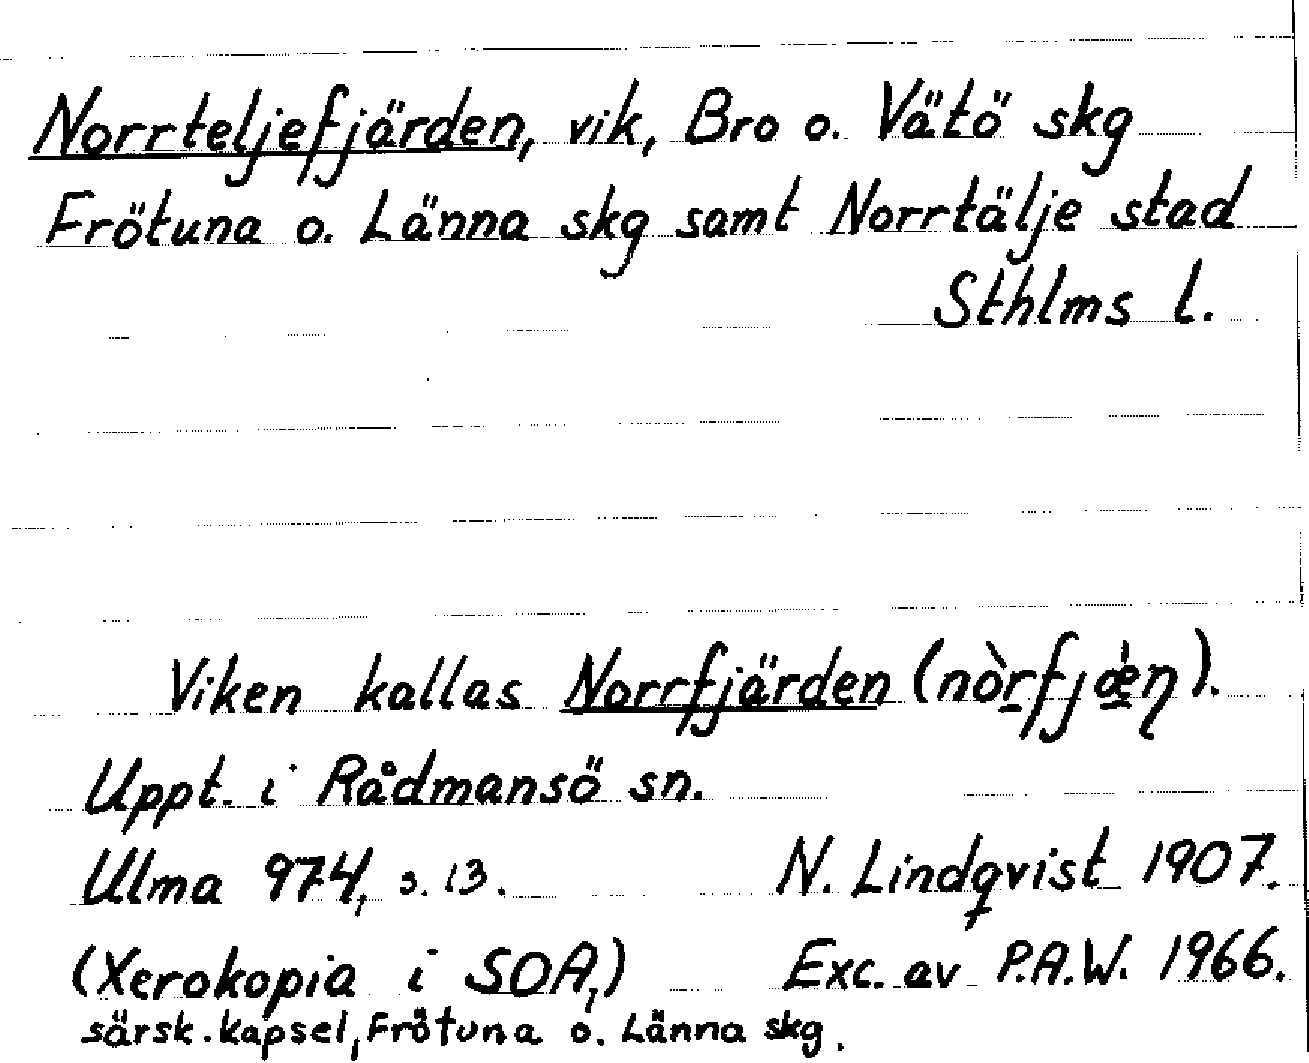 Norrteljefjärden, vik, Bro o. Vätö skg
Frötuna o. Länna skg samt Norrtälje stad
Sthlms l.
Viken kallas Norrfjärden (nòr̲fjæ̲̀ņ).
Uppt. i Rådmansö sn.
Ulma 974, s. 13. N. Lindqvist 1907.
(Xerokopia i SOA,) Exc. av P.A.W. 1966.
särsk. kapsel, Frötuna o. Länna skg.